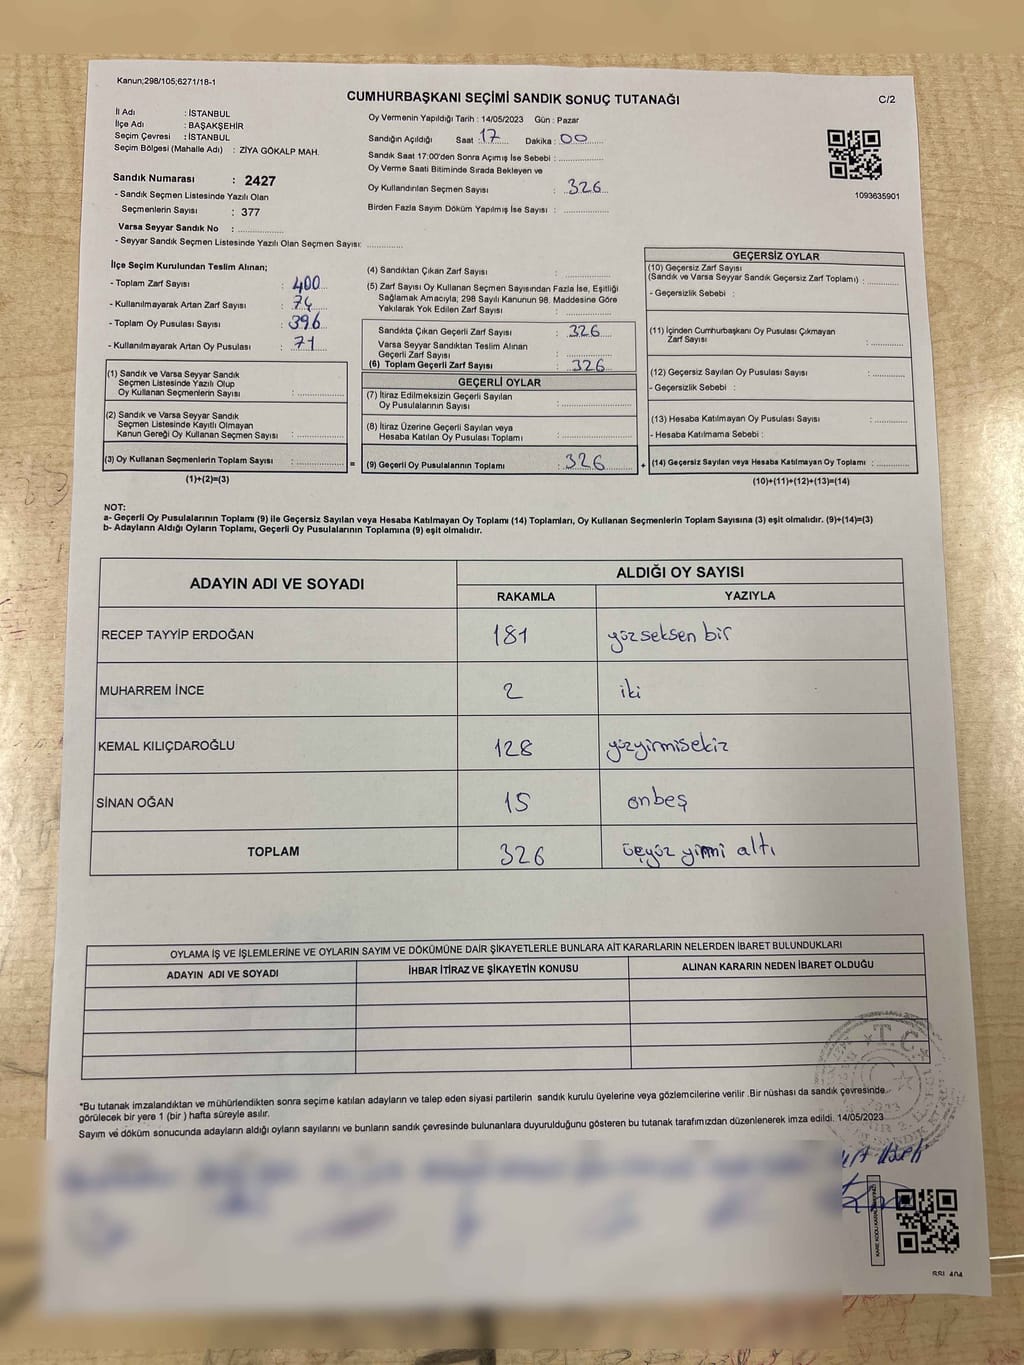 Kanun;298/105;6271/18-1
CUMHURBAŞKANI SEÇİMİ SANDIK SONUÇ TUTANAĞI
C/2
İl Adı : İSTANBUL
İlçe Adı : BAŞAKŞEHİR
Seçim Çevresi : İSTANBUL
Seçim Bölgesi (Mahalle Adı) : ZİYA GÖKALP MAH.
Sandık Numarası : 2427
- Sandık Seçmen Listesinde Yazılı Olan
Seçmenlerin Sayısı : 377
Varsa Seyyar Sandık No : ..............
- Seyyar Sandık Seçmen Listesinde Yazılı Olan Seçmen Sayısı: ............
Oy Vermenin Yapıldığı Tarih : 14/05/2023 Gün : Pazar
Sandığın Açıldığı Saat : 17 Dakika : 00
Sandık Saat 17:00'den Sonra Açımış İse Sebebi : ..............
Oy Verme Saati Bitiminde Sırada Bekleyen ve
Oy Kullandırılan Seçmen Sayısı : 326
Birden Fazla Sayım Döküm Yapılmış İse Sayısı : ..............
1093635901
İlçe Seçim Kurulundan Teslim Alınan;
- Toplam Zarf Sayısı : 400
- Kullanılmayarak Artan Zarf Sayısı : 74
- Toplam Oy Pusulası Sayısı : 396
- Kullanılmayarak Artan Oy Pusulası : 71
(1) Sandık ve Varsa Seyyar Sandık
Seçmen Listesinde Yazılı Olup
Oy Kullanan Seçmenlerin Sayısı : ..............
(2) Sandık ve Varsa Seyyar Sandık
Seçmen Listesinde Kayıtlı Olmayan
Kanun Gereği Oy Kullanan Seçmen Sayısı : ..............
(3) Oy Kullanan Seçmenlerin Toplam Sayısı : ..............
(1)+(2)=(3)
(4) Sandıktan Çıkan Zarf Sayısı : ..............
(5) Zarf Sayısı Oy Kullanan Seçmen Sayısından Fazla İse, Eşitliği
Sağlamak Amacıyla; 298 Sayılı Kanunun 98. Maddesine Göre
Yakılarak Yok Edilen Zarf Sayısı : ..............
Sandıkta Çıkan Geçerli Zarf Sayısı : 326
Varsa Seyyar Sandıktan Teslim Alınan
Geçerli Zarf Sayısı : ..............
(6) Toplam Geçerli Zarf Sayısı : 326
GEÇERLİ OYLAR
(7) İtiraz Edilmeksizin Geçerli Sayılan
Oy Pusulalarının Sayısı : ..............
(8) İtiraz Üzerine Geçerli Sayılan veya
Hesaba Katılan Oy Pusulası Toplamı : ..............
= (9) Geçerli Oy Pusulalarının Toplamı : 326
GEÇERSİZ OYLAR
(10) Geçersiz Zarf Sayısı
(Sandık ve Varsa Seyyar Sandık Geçersiz Zarf Toplamı) : ..............
- Geçersizlik Sebebi :
(11) İçinden Cumhurbaşkanı Oy Pusulası Çıkmayan
Zarf Sayısı : ..............
(12) Geçersiz Sayılan Oy Pusulası Sayısı : ..............
- Geçersizlik Sebebi :
(13) Hesaba Katılmayan Oy Pusulası Sayısı : ..............
- Hesaba Katılmama Sebebi :
+ (14) Geçersiz Sayılan veya Hesaba Katılmayan Oy Toplamı : ..............
(10)+(11)+(12)+(13)=(14)
NOT:
a- Geçerli Oy Pusulalarının Toplamı (9) ile Geçersiz Sayılan veya Hesaba Katılmayan Oy Toplamı (14) Toplamları, Oy Kullanan Seçmenlerin Toplam Sayısına (3) eşit olmalıdır. (9)+(14)=(3)
b- Adayların Aldığı Oyların Toplamı, Geçerli Oy Pusulalarının Toplamına (9) eşit olmalıdır.
ADAYIN ADI VE SOYADI ALDIĞI OY SAYISI
RAKAMLA YAZIYLA
RECEP TAYYİP ERDOĞAN 181 yüzseksen bir
MUHARREM İNCE 2 iki
KEMAL KILIÇDAROĞLU 128 yüzyirmisekiz
SİNAN OĞAN 15 onbeş
TOPLAM 326 üçyüz yirmi altı
OYLAMA İŞ VE İŞLEMLERİNE VE OYLARIN SAYIM VE DÖKÜMÜNE DAİR ŞİKAYETLERLE BUNLARA AİT KARARLARIN NELERDEN İBARET BULUNDUKLARI
ADAYIN ADI VE SOYADI İHBAR İTİRAZ VE ŞİKAYETİN KONUSU ALINAN KARARIN NEDEN İBARET OLDUĞU
T.C
*Bu tutanak imzalandıktan ve mühürlendikten sonra seçime katılan adayların ve talep eden siyasi partilerin sandık kurulu üyelerine veya gözlemcilerine verilir .Bir nüshası da sandık çevresinde
görülecek bir yere 1 (bir ) hafta süreyle asılır.
Sayım ve döküm sonucunda adayların aldığı oyların sayılarını ve bunların sandık çevresinde bulunanlara duyurulduğunu gösteren bu tutanak tarafımızdan düzenlenerek imza edildi. 14/05/2023